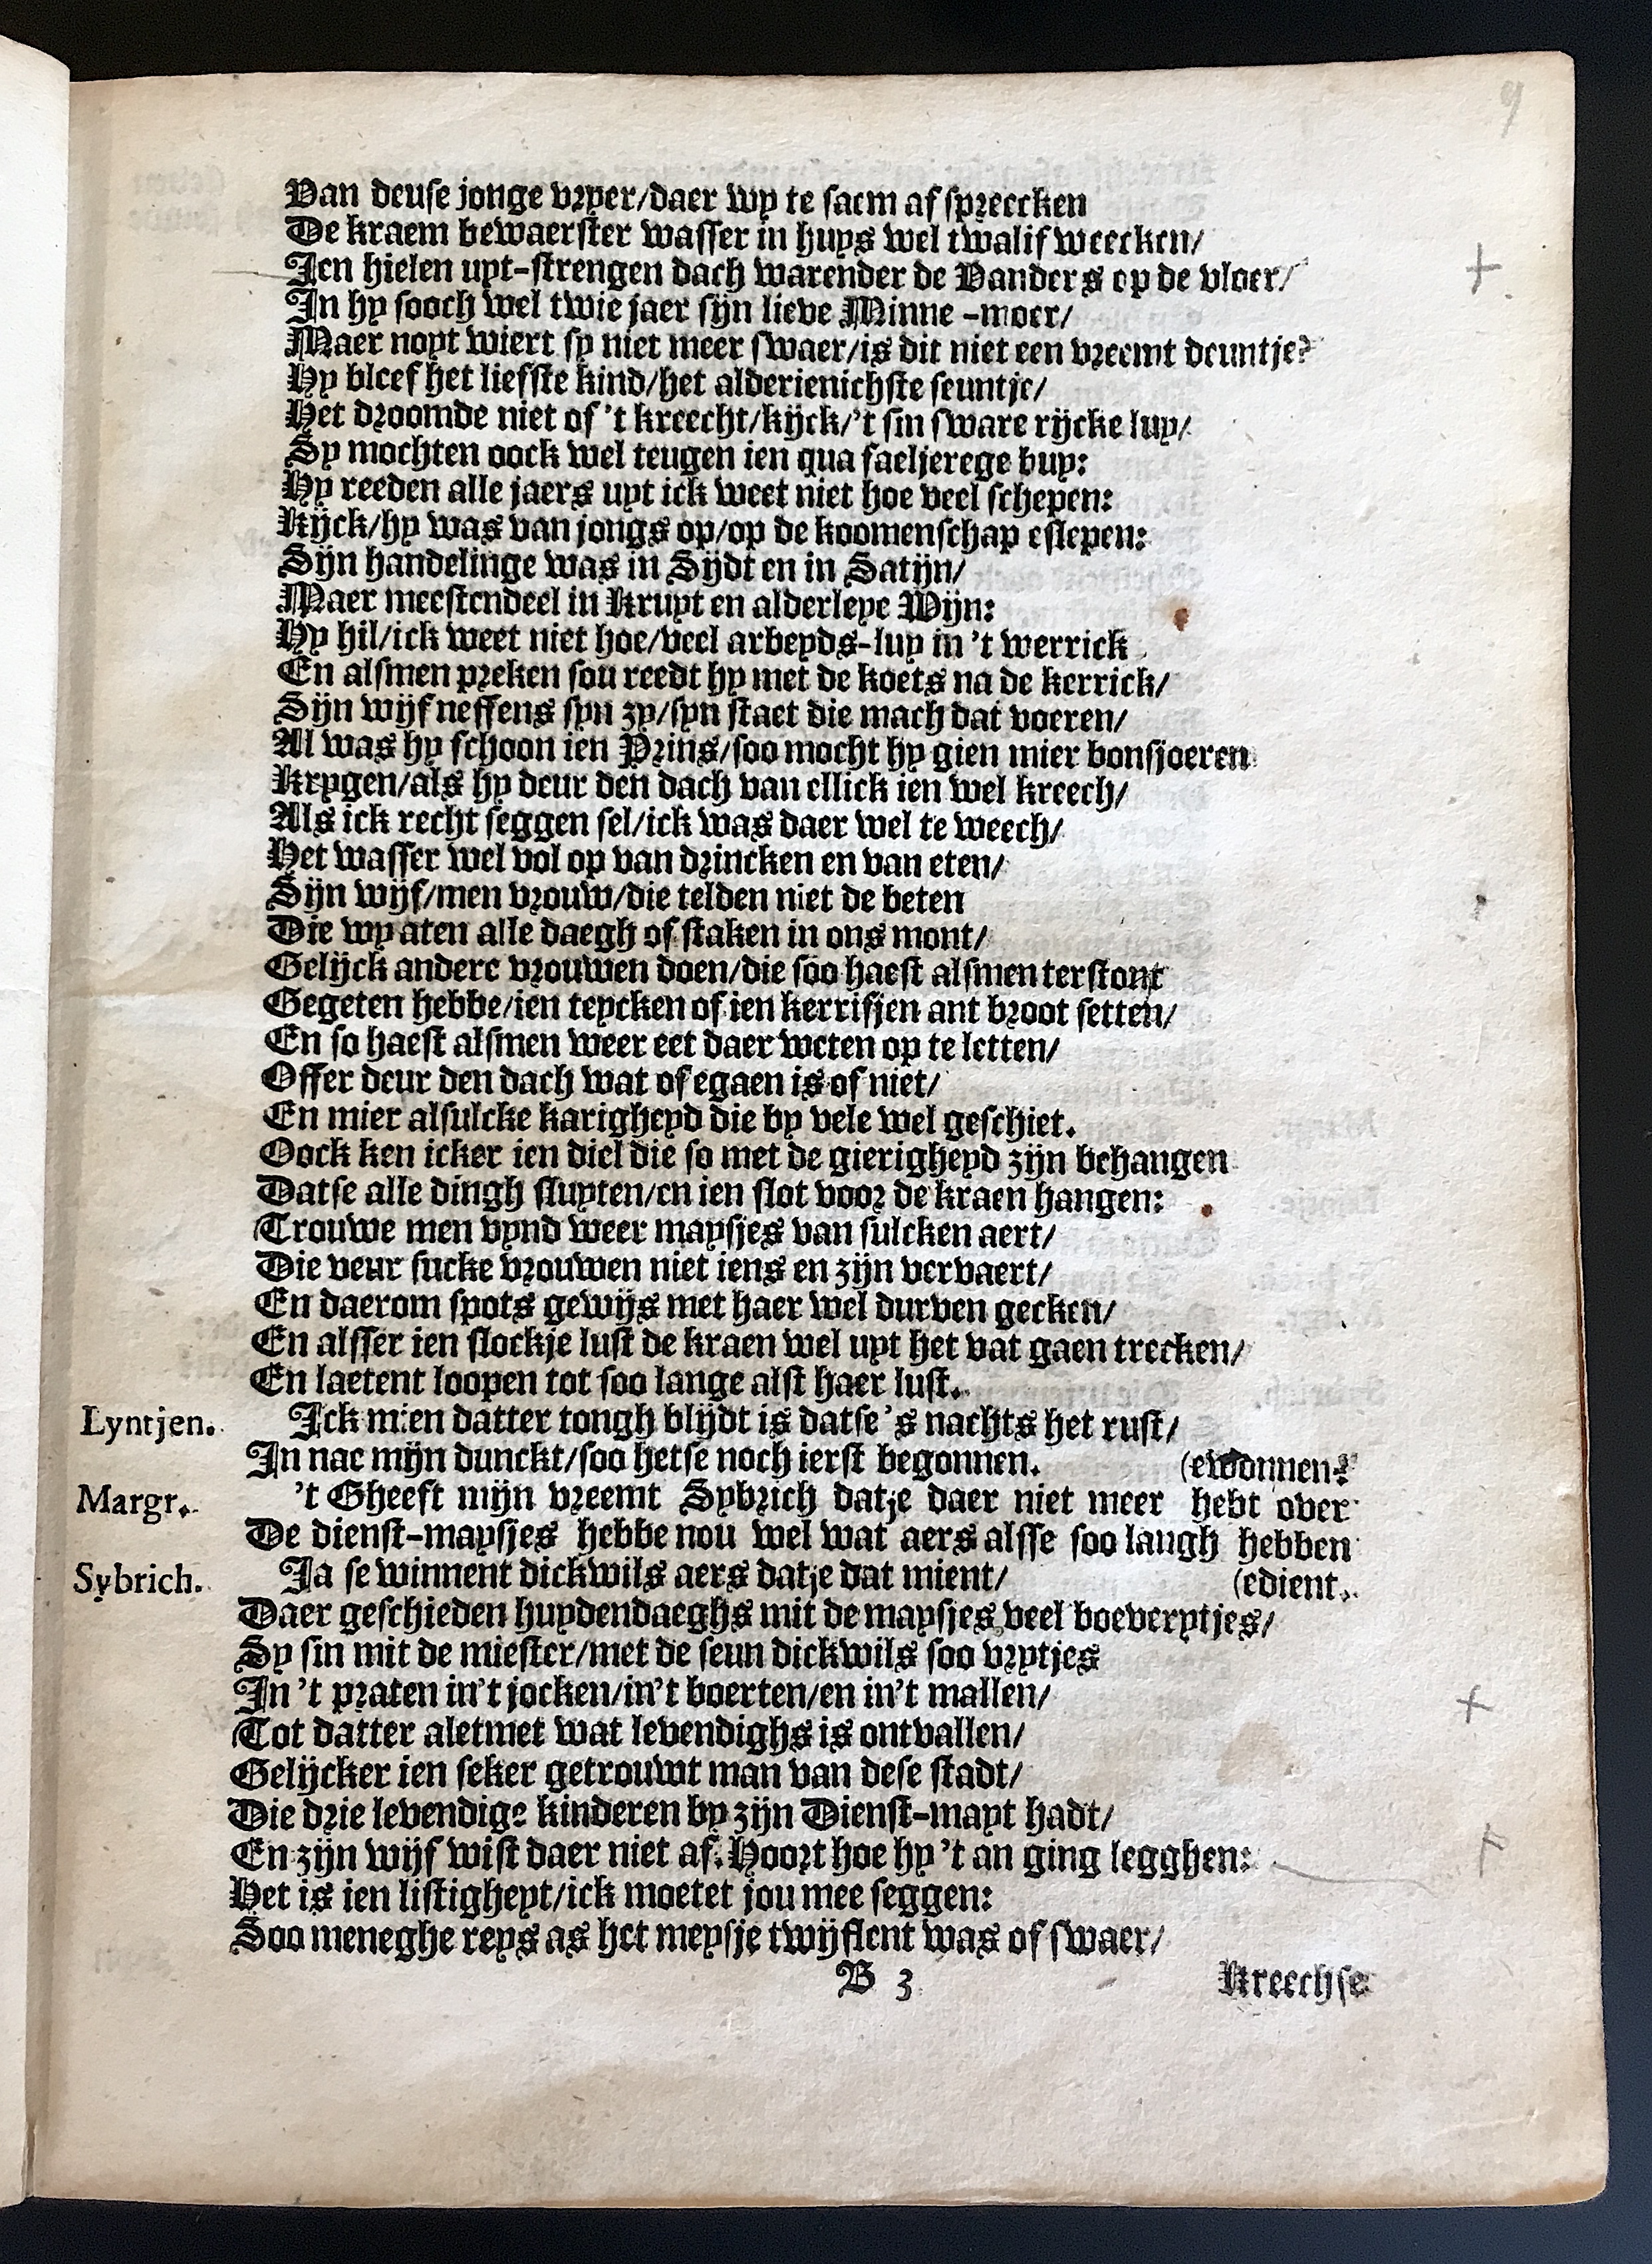 9
Van deuse jonge vryer/daer wy te saem af spreecken
De kraem bewaerster wasser in huys wel twalif weecken/
Jen hielen uyt-strengen dach warender de Vanders op de vloer/
In hy sooch wel twie jaer sijn lieve Minne-moer/
Maer noyt wiert sy niet meer swaer/is dit niet een vreemt deuntje?
Hy bleef het liefste kind/het alderienichste seuntje/
Het droomde niet of 't kreecht/kijck/'t sin sware rijcke luy/
Sy mochten oock wel teugen ien qua saeljerege buy:
Hy reeden alle jaers uyt ick weet niet hoe veel schepen:
Kijck/hy was van jongs op/op de koomenschap eslepen:
Sijn handelinge was in Sijdt en in Satijn/
Maer meestendeel in Kruyt en alderleye Wijn:
Hy hil/ick weet niet hoe/veel arbeyds-luy in 't werrick
En alsmen preken sou reedt hy met de koets na de kerrick/
Sijn wijf neffens syn zy/syn staet die mach dat voeren/
Al was hy schoon ien Prins/soo mocht hy gien mier bonsjoeren
Krygen/als hy deur den dach van ellick ien wel kreech/
Als ick recht seggen sel/ick was daer wel te weech/
Het wasser wel vol op van drincken en van eten/
Sijn wijf/men vrouw/die telden niet de beten
Die wy aten alle daegh of staken in ons mont/
Gelijck andere vrouwen doen/die soo haest alsmen terstont
Gegeten hebbe/ien teycken of ien kerrifjen ant broot setten/
En so haest alsmen weer eet daer weten op te letten/
Offer deur den dach wat of egaen is of niet/
En mier alsulcke karigheyd die by vele wel geschiet.
Oock ken icker ien diel die so met de gierigheyd zijn behangen
Datse alle dingh sluyten/en ien slot voor de kraen hangen:
Trouwe men vynd weer maysjes van sulcken aert/
Die veur sucke vrouwen niet iens en zijn vervaert/
En daerom spots gewijs met haer wel durven gecken/
En alsser ien slockje lust de kraen wel uyt het vat gaen trecken/
En laetent loopen tot soo lange alst haer lust.
Lyntjen. Ick mien datter tongh blijdt is datse 's nachts het rust/
In nae mijn dunckt/soo hetse noch ierst begonnen. (ewonnen?
Margr. 't Gheeft mijn vreemt Sybrich datje daer niet meer hebt over
De dienst-maysjes hebbe nou wel wat aers alsse soo langh hebben
Sybrich. Ja se winnent dickwils aers datje dat mient/ (edient.
Daer geschieden huydendaeghs mit de maysjes veel boeverytjes/
Sy sin mit de miester/met de seun dickwils soo vrytjes
In 't praten in't jocken/in't boerten/en in't mallen/
Tot datter aletmet wat levendighs is ontvallen/
Gelijcker ien seker getrouwt man van dese stadt/
Die drie levendige kinderen by zijn Dienst-mayt hadt/
En zijn wijf wist daer niet af. Hoort hoe hy 't an ging legghen:
Het is ien listigheyt/ick moetet jou mee seggen:
Soo meneghe reys as het meysje twijflent was of swaer/
B 3 Kreechse